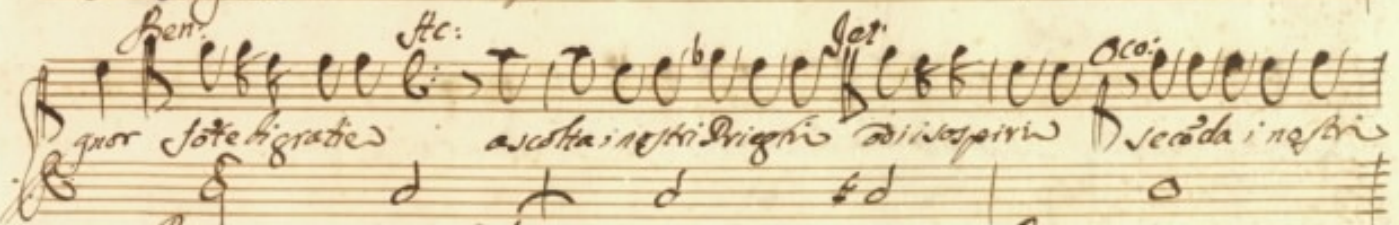 Ben: Ac: Jet: Oco:
gnor sõte ligratie ascolta i nostri Prieghi odi i sospiri secõda i nostri